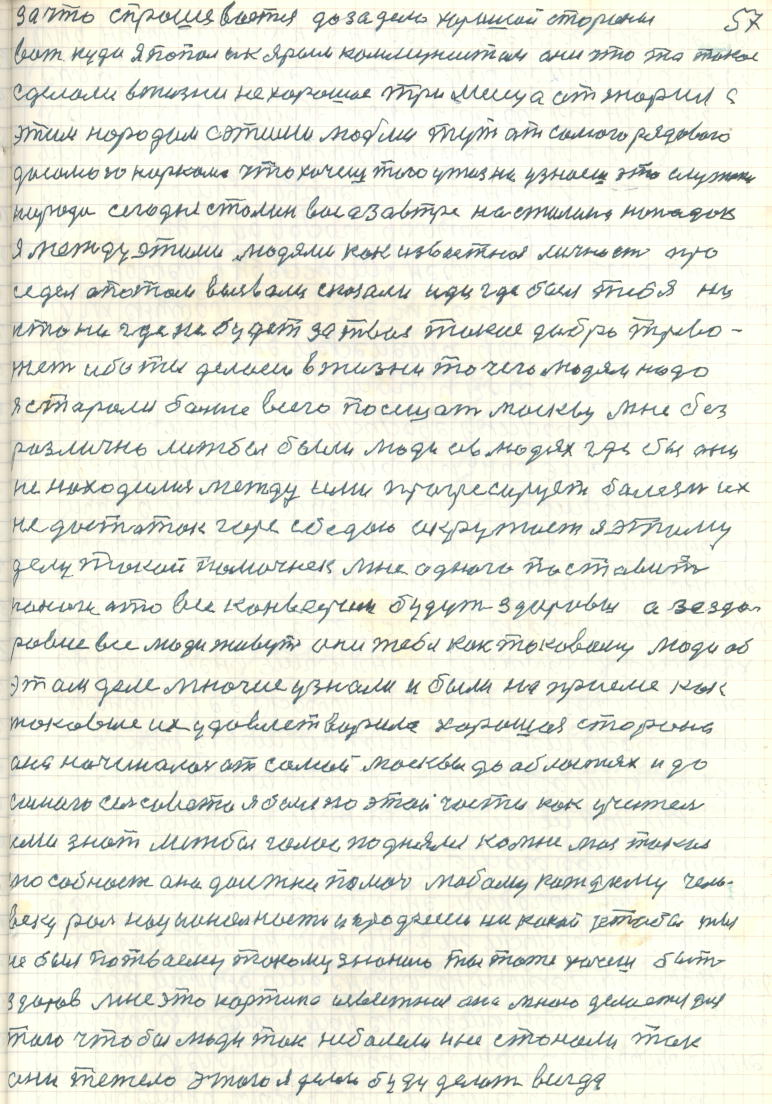 за что спрошевоется да за дело хорошой стороны 57
вот куди я попол ик ярым коммунистам они што то такое
сделоли вжизни не хорошое три месеца атжорил с
этим народом сэтими людми тут от самого рядового
досамого наркома что хочеш того ужизни узнаеш это служит
народа сегодне сталин вое азавтре на сталина нопадок
я между этими людями как известная личност про
седел опотом вызвали сказоли иди где был тибя ни
кто ни где не будет за твои токие добро трево-
жет ибо ти делаеш вжизни то чего людям надо
я старолси болше всего посищат москву мне без
различно лижбы были люди ив людях где бы они
не находилися между ими прогресирует болезн их
недостаток горе сбедою окружает я этому
делу токой помочнек мне одного поставит
наноги ато все конвеерам будут здоровы а зездо
ровие все люди живут они тебя как токовому люди об
этом деле многие узнали и были на приеме как
токовые их удовлетворила хорошая сторона
она начиналас от самой москвы до областях и до
самого селсовета я был по этой части как учител
ими знат лижбы голос подняли комне моя такая
способност она должна помоч любому каждому чело-
веку рол националность ипрофесии ни какой штобы ти
не был потвоему такому знанию ти тоже хочеш быт
здоров мне это картина известная она мною делается для
того чтобы люди так неболели и не стонали так
они тежело этого я делал буду делат всегда